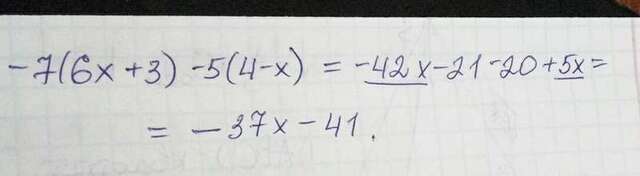 -7(6x+3) -5(4-x) = -42x-21-20+5x=
= -37x-41.